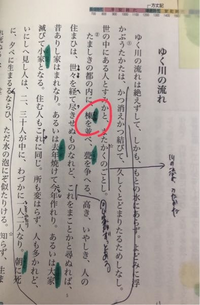 ゆく川の流れ
ゆく川の流れは絶えずして、しかも、もとの水にあらず。よどみに浮
かぶうたかたは、かつ消えかつ結びて、久しくとどまりたるためしなし。
世の中にある人とすみかと、またかくのごとし。
たましきの都の内に、棟を並べ、甍を争へる、高き、いやしき、人の
住まひは、世々を経て尽きせぬものなれど、これをまことかと尋ぬれば、
昔ありし家はまれなり。あるいは去年焼けて今年作れり。あるいは大家
滅びて小家となる。住む人もこれに同じ。所も変はらず、人も多かれど、
いにしへ見し人は、二、三十人が中に、わづかに一人二人なり。朝に死
に、夕べに生まるるならひ、ただ水の泡にぞ似たりける。知らず、生ま